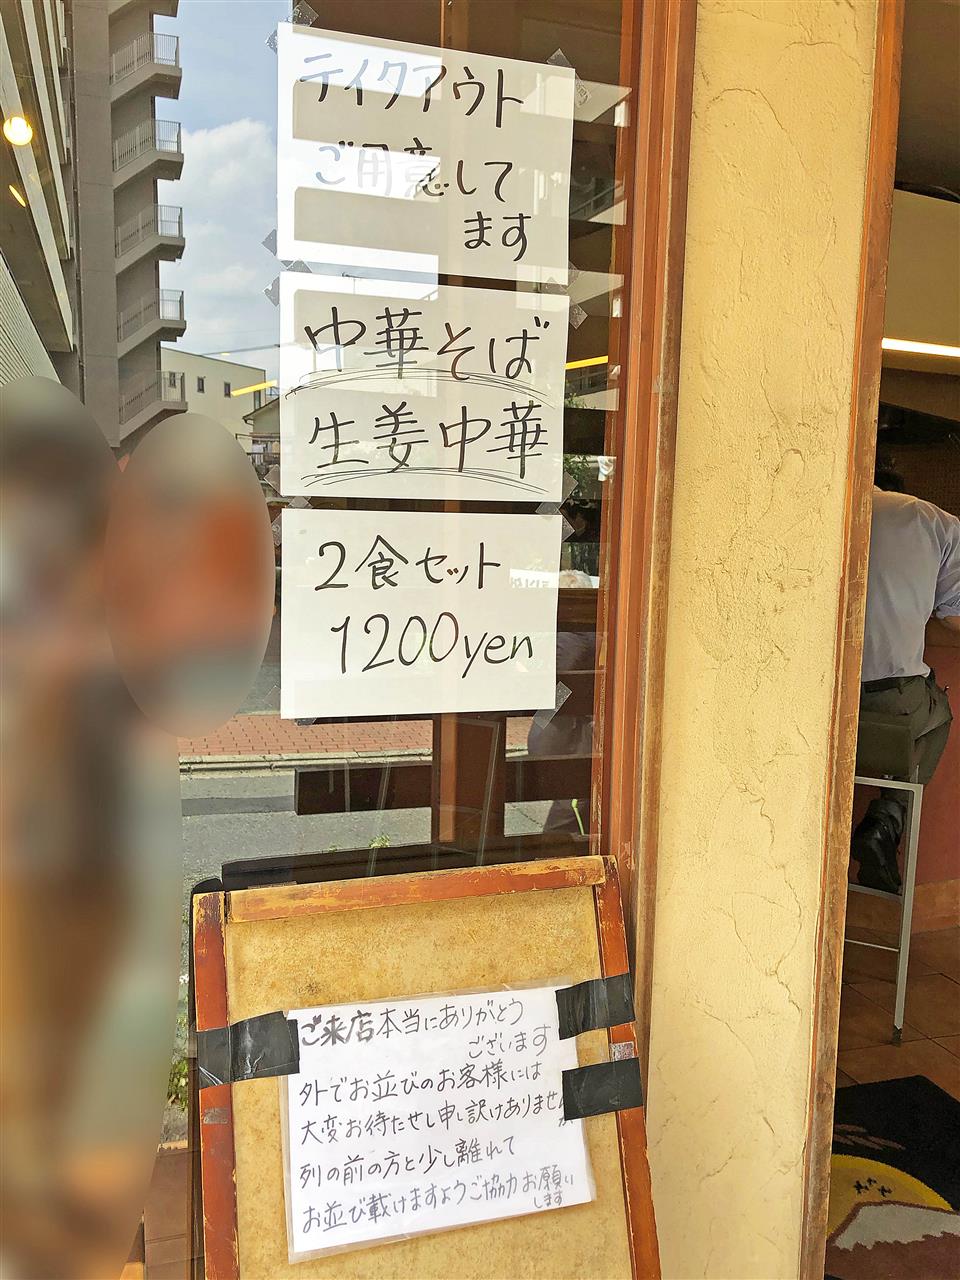 テイクアウト
ご用意して
ます
中華そば
生姜中華
2食セット
1200yen
ご来店本当にありがとう
ございます
外でお並びのお客様には
大変お待たせし申し訳けありません
列の前の方と少し離れて
お並び載けますようご協力お願い
します